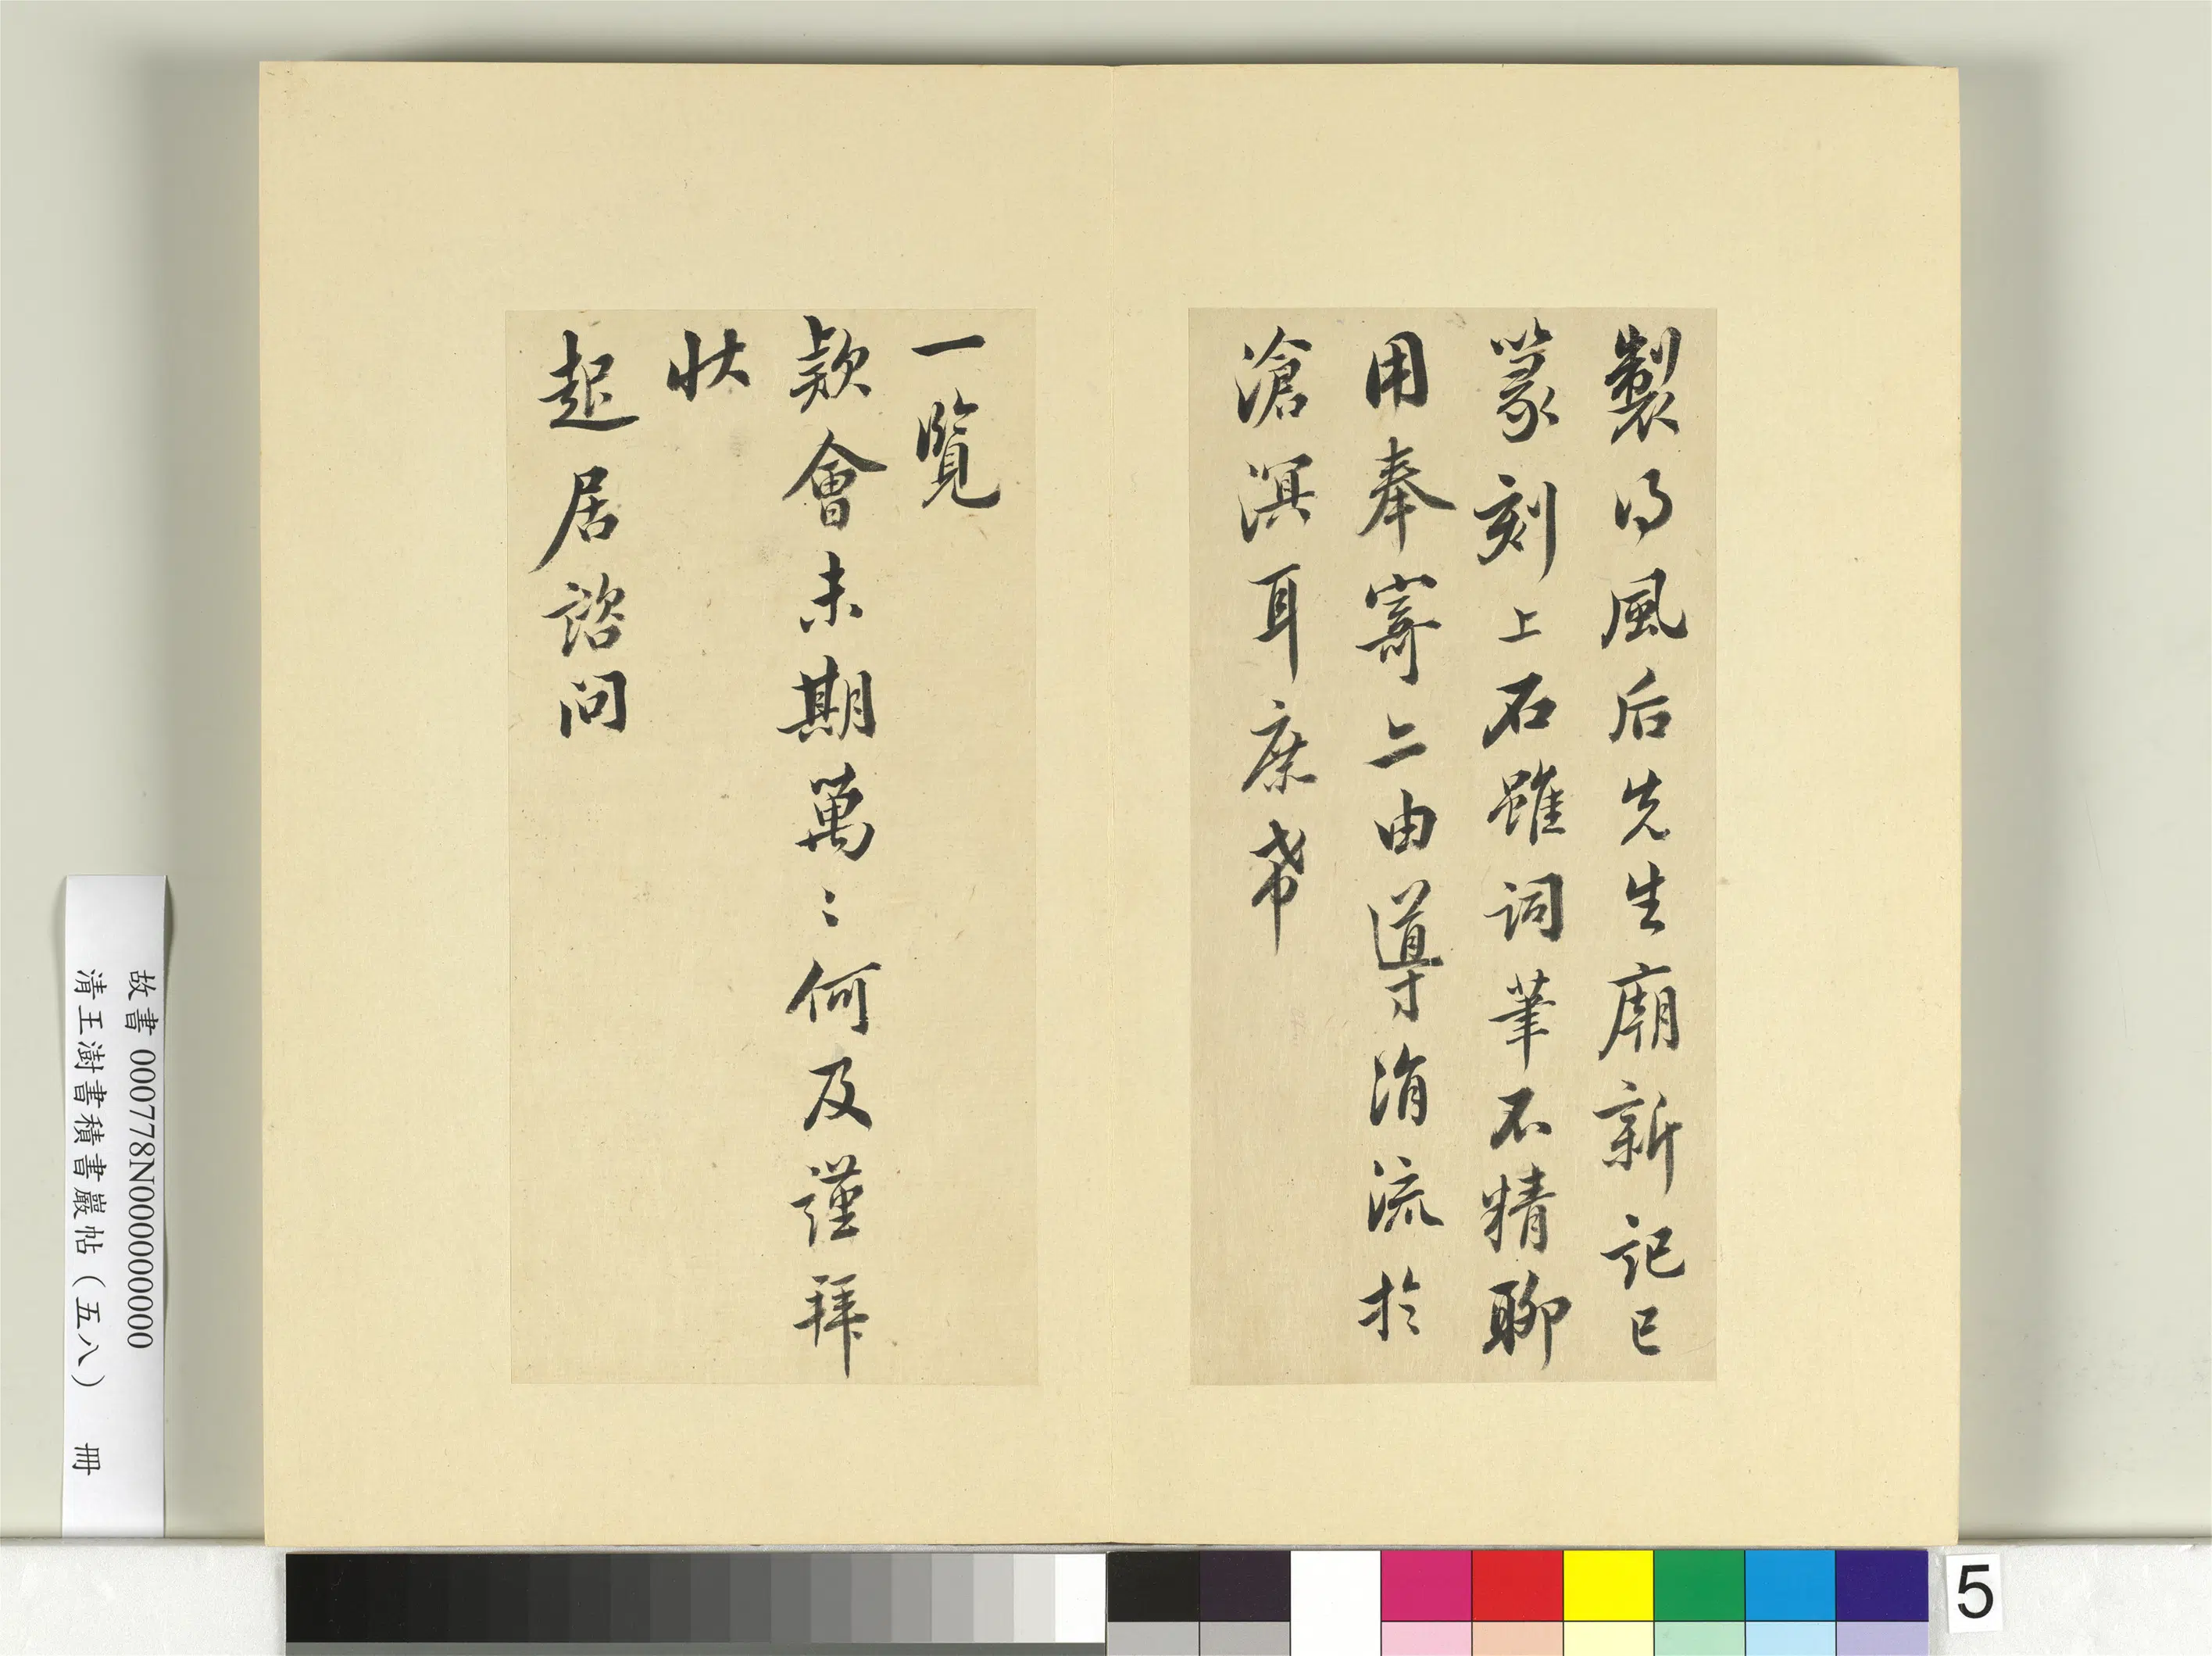 製得風后先生廟新記已
篆刻上石雖詞筆不精聊
用奉寄亦由導涓流於
滄溟耳庶希
一覽
款會未期萬〻何及謹拜
狀
起居諮問
故書 000778N000000000
清王澍書積書巖帖（五八） 冊
5